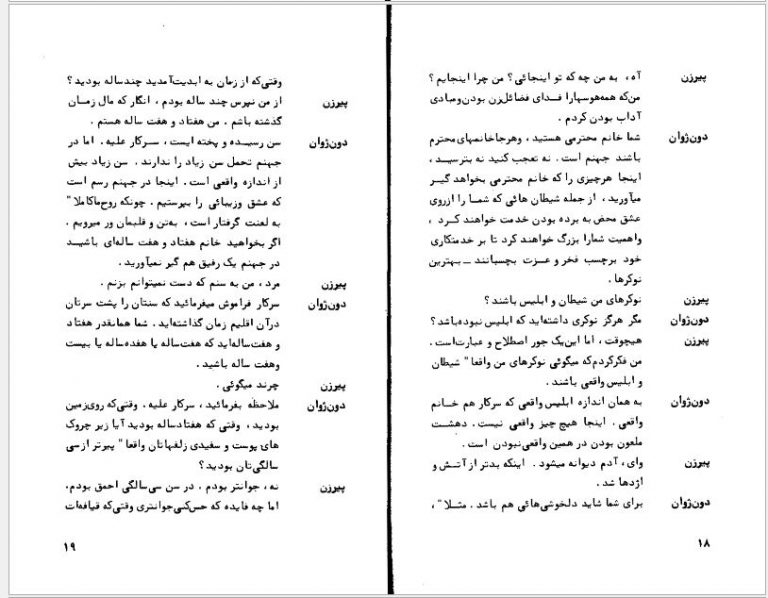 پیرزن آه، به من چه که تو اینجائی؟ من چرا اینجایم؟
من‌که همه‌هوسهارا فدای فضائل‌زن بودن‌ومبادی
آداب بودن کردم.
دون‌ژوان شما خانم محترمی هستید، وهرجاخانمهای‌محترم
باشند جهنم است. نه تعجب کنید نه بترسید،
اینجا هرچیزی را که خانم محترمی بخواهد گیر
میآورید، از جمله شیطان هائی که شما را ازروی
عشق محض به برده بودن خدمت خواهند کرد،
واهمیت شمارا بزرگ خواهند کرد تا بر خدمتکاری
خود برچسب فخر و عزت بچسبانند ــ بهترین
نوکرها.
پیرزن نوکرهای من شیطان و ابلیس باشند؟
دون‌ژوان مگر هرگز نوکری داشته‌اید که ابلیس نبوده‌باشد؟
پیرزن هیچوقت، اما این‌یک جور اصطلاح و عبارت‌است.
من فکرکردم‌که میگوئی نوکرهای من واقعا" شیطان
و ابلیس واقعی باشند.
دون‌ژوان به همان اندازه ابلیس واقعی که سرکار هم خانم
واقعی. اینجا هیچ چیز واقعی نیست. دهشت
ملعون بودن در همین واقعی‌نبودن است.
پیرزن وای، آدم دیوانه میشود. اینکه بدتر از آتش و
اژدها شد.
دون‌ژوان برای شما شاید دلخوشی‌هائی هم باشد. مثلا"،
۱۸
وقتی‌که از زمان به ابدیت‌آمدید چندساله بودید؟
پیرزن از من نپرس چند ساله بودم، انگار که مال زمان
گذشته باشم. من هفتاد و هفت ساله هستم.
دون‌ژوان سن رسیده و پخته ایست، سرکار علیه. اما در
جهنم تحمل سن زیاد را ندارند. سن زیاد بیش
از اندازه واقعی است. اینجا در جهنم رسم است
که عشق وزیبائی را بپرستیم. چونکه روح‌ماکاملا"
به لعنت گرفتار است، به‌تن و قلبمان ور میرویم.
اگر بخواهید خانم هفتاد و هفت ساله‌ای باشید
در جهنم یک رفیق هم گیر نمیآورید.
پیرزن مرد، من به سنم که دست نمیتوانم بزنم.
دون‌ژوان سرکار فراموش میفرمائید که سنتان را پشت سرتان
درآن اقلیم زمان گذاشته‌اید. شما همانقدر هفتاد
و هفت‌ساله‌اید که هفت‌ساله یا هفده‌ساله یا بیست
وهفت ساله باشید.
پیرزن چرند میگوئی.
دون‌ژوان ملاحظه بفرمائید، سرکار علیه. وقتی‌که روی‌زمین
بودید، وقتی که هفتادساله بودید آیا زیر چروک
های پوست و سفیدی زلفهاتان واقعا" پیرتر از سی
سالگی‌تان بودید؟
پیرزن نه، جوانتر بودم. در سن سی‌سالگی احمق بودم.
اما چه فایده که حس‌کنی‌جوانتری وقتی‌که قیافه‌ات
۱۹